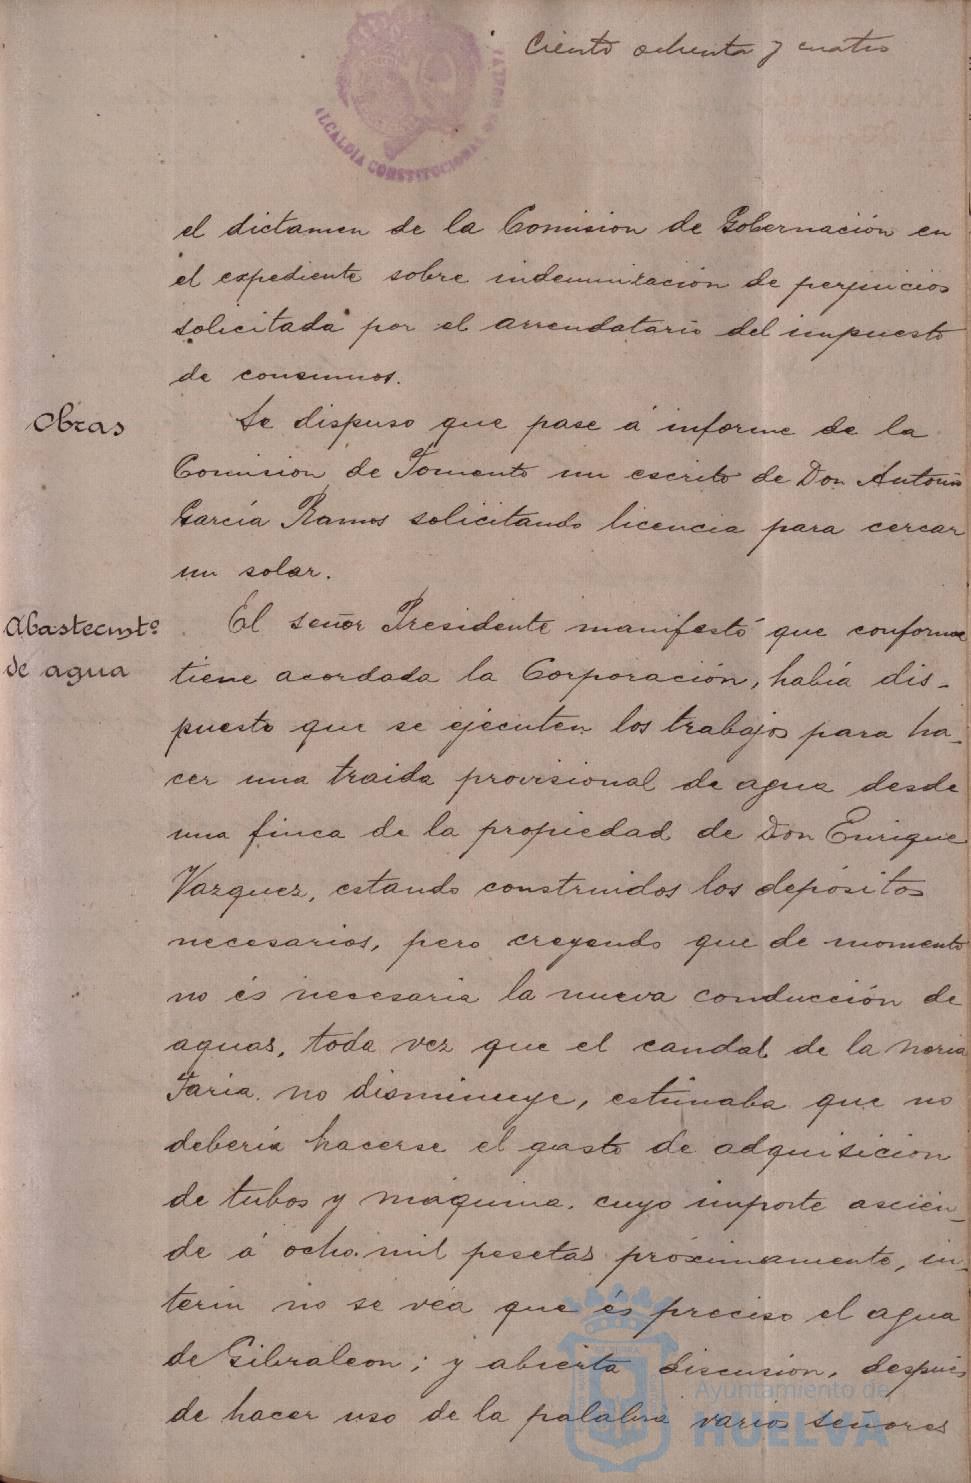 Ciento ochenta y cuatro
ALCALDIA CONSTITUCIONAL DE HUELVA
el dictamen de la Comision de Gobernación en
el expediente sobre indemnización de perjuicios
solicitada por el arrendatario del impuesto
de consumos.
Obras
Se dispuso que pase á informe de la
Comision de Fomento un escrito de Don Antonio
García Ramos solicitando licencia para cercar
un solar.
Abastecimtº
de agua
El señor Presidente manifestó que conforme
tiene acordada la Corporación, había dis-
puesto que se ejecuten los trabajos para ha-
cer una traida provisional de agua desde
una finca de la propiedad de Don Enrique
Vazquez, estando construidos los depósitos
necesarios, pero creyendo que de momento
no és necesaria la nueva conducción de
aguas, toda vez que el caudal de la noria
Taria no disminuye, estimaba que no
debería hacerse el gasto de adquisicion
de tubos y máquina, cuyo importe ascien-
de á ocho mil pesetas próximamente, in-
terin no se vea que és preciso el agua
de Gibraleon; y abierta discusion, después
de hacer uso de la palabra varios señores
Ayuntamiento de
HUELVA